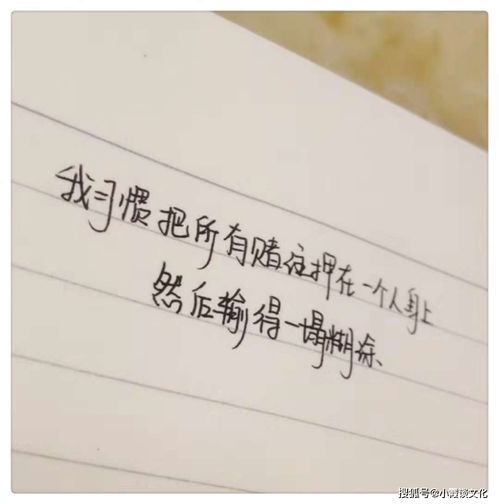 我习惯把所有赌注押在一个人身上
然后输得一塌糊涂、
搜狐号@小嘀谈文化